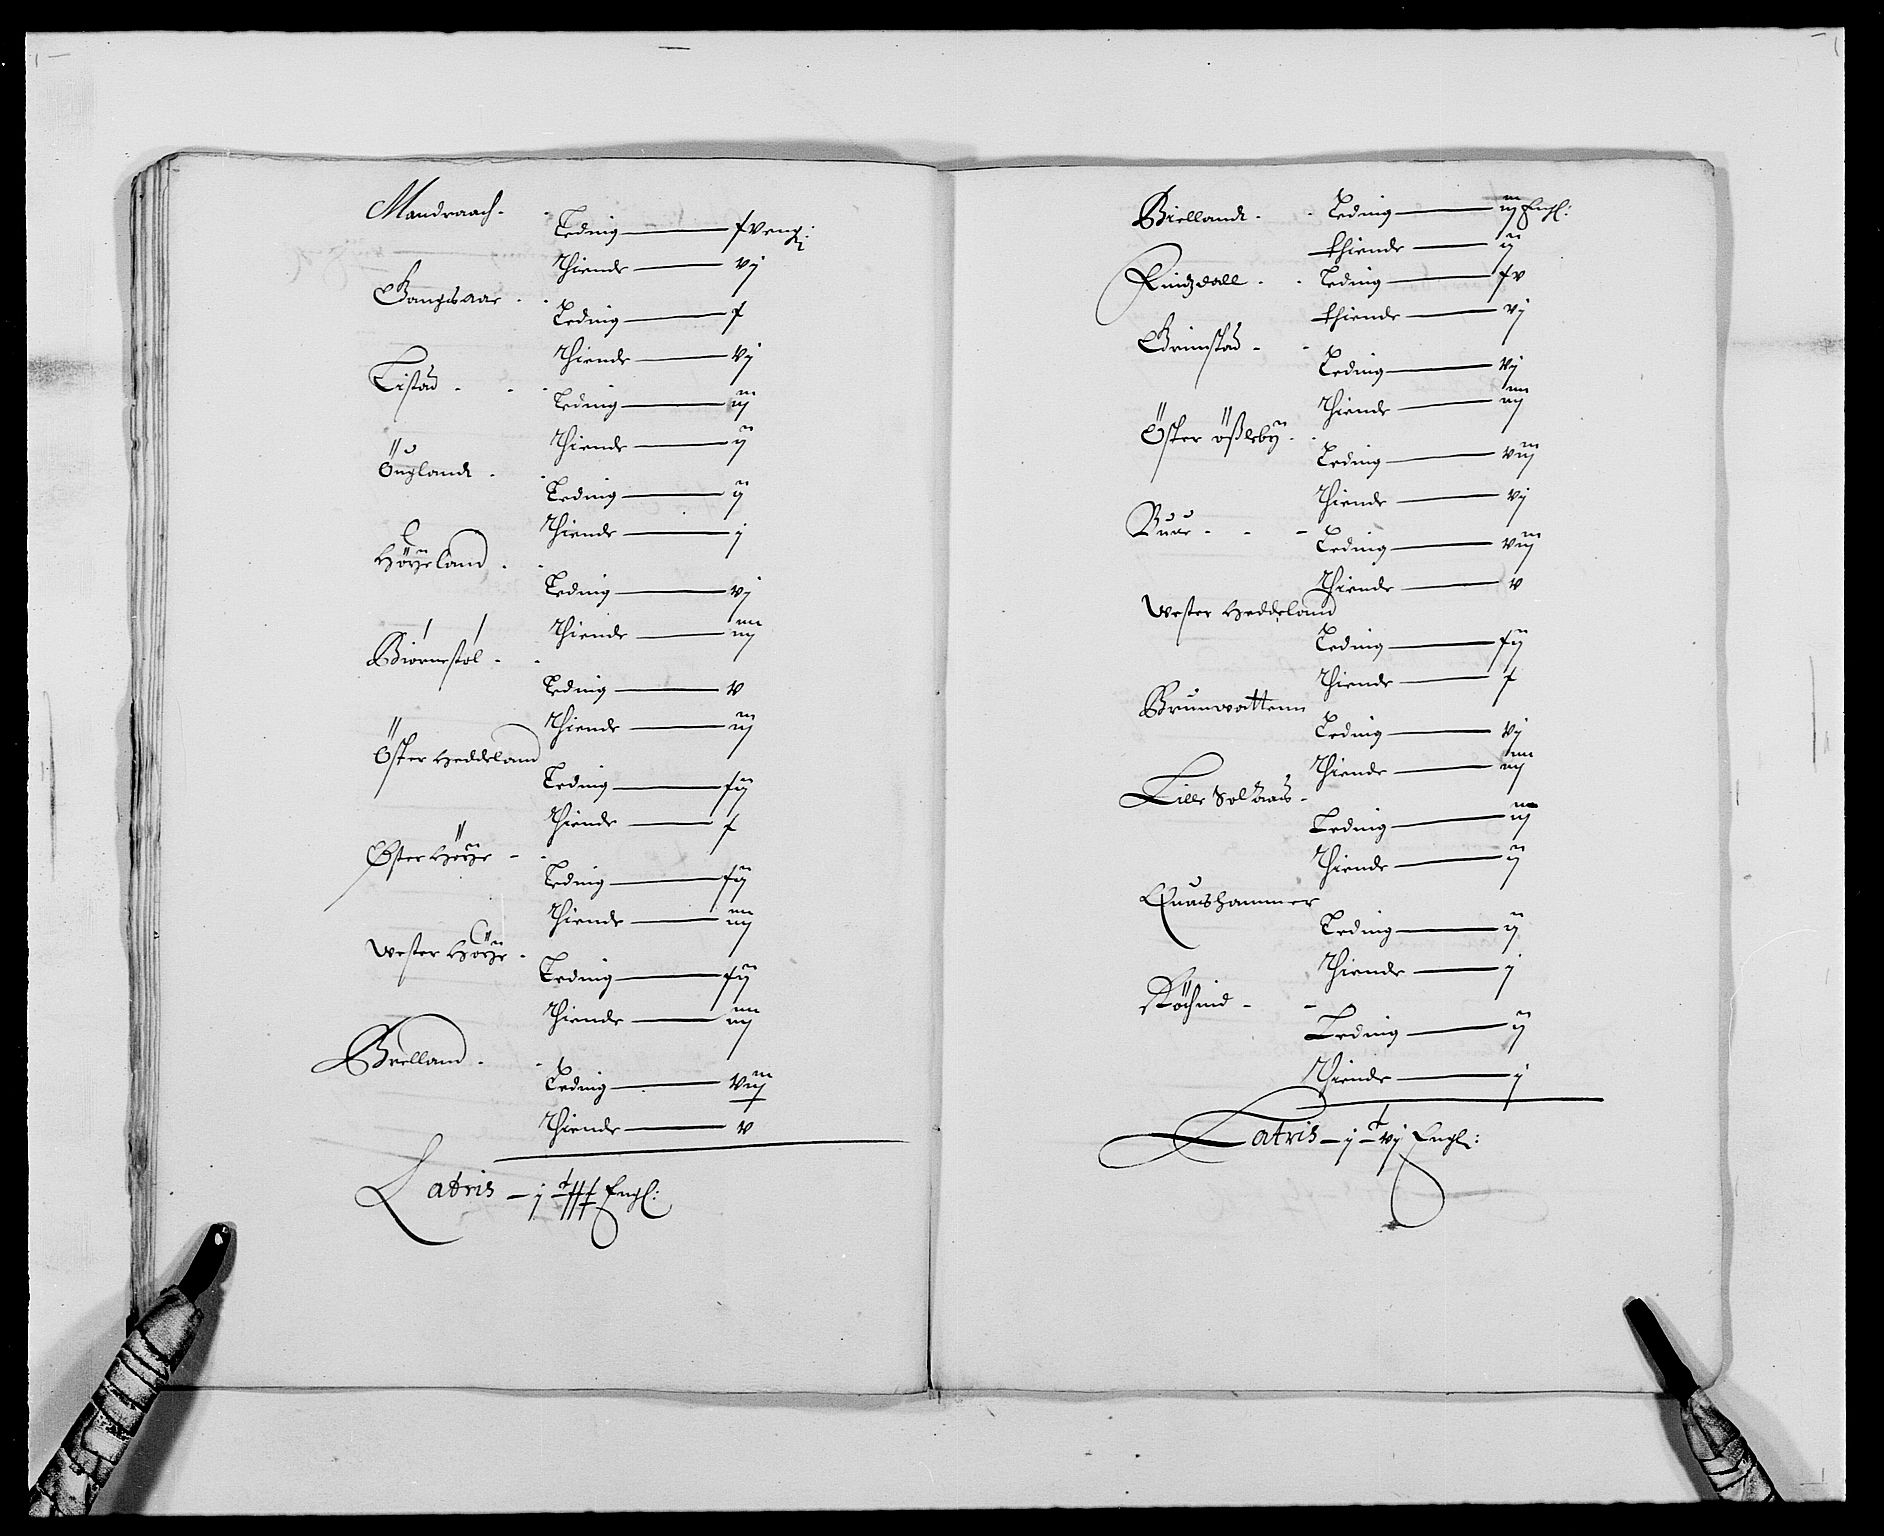 Mandraach -
Leding — xv engl:
Thiende — vj
Gangsaae - -
Leding — x
Thiende — vj
Listad - - -
Leding — iij
Thiende — ij
Öuglandt - -
Leding — ij
Thiende — j
Höÿeland - -
Leding — vj
Thiende — iiij
Biornestol - -
Leding — v
Thiende — iij
Öster Heddeland
Leding — xij
Thiende — x
Øster Höÿe - -
Leding — xij
Thiende — iiij
Wester Höÿe -
Leding — xij
Thiende — iiij
Brelland - -
Leding — viij
Thiende — v
Latris — j Engl:
Biellandt - - Leding — iij Engl:
thiende — ij
Ringdall - - Leding — xv
thiende — vj
Grimstad - -
Leding — vj
Thiende — iiij
Öster ößlebÿ - -
Leding — viij
Thiende — vj
Buue - - -
Leding — viij
Thiende — v
Wester Heddeland
Leding — xij
Thiende — x
Brunvatten
Leding — vj
Thiende — iiij
Lille Solaaas -
Leding — iij
Thiende — ij
Quaashammer
Leding — ij
Thiende — j
- -
Leding — ij
Thiende — j
Latris — j vj Engl: